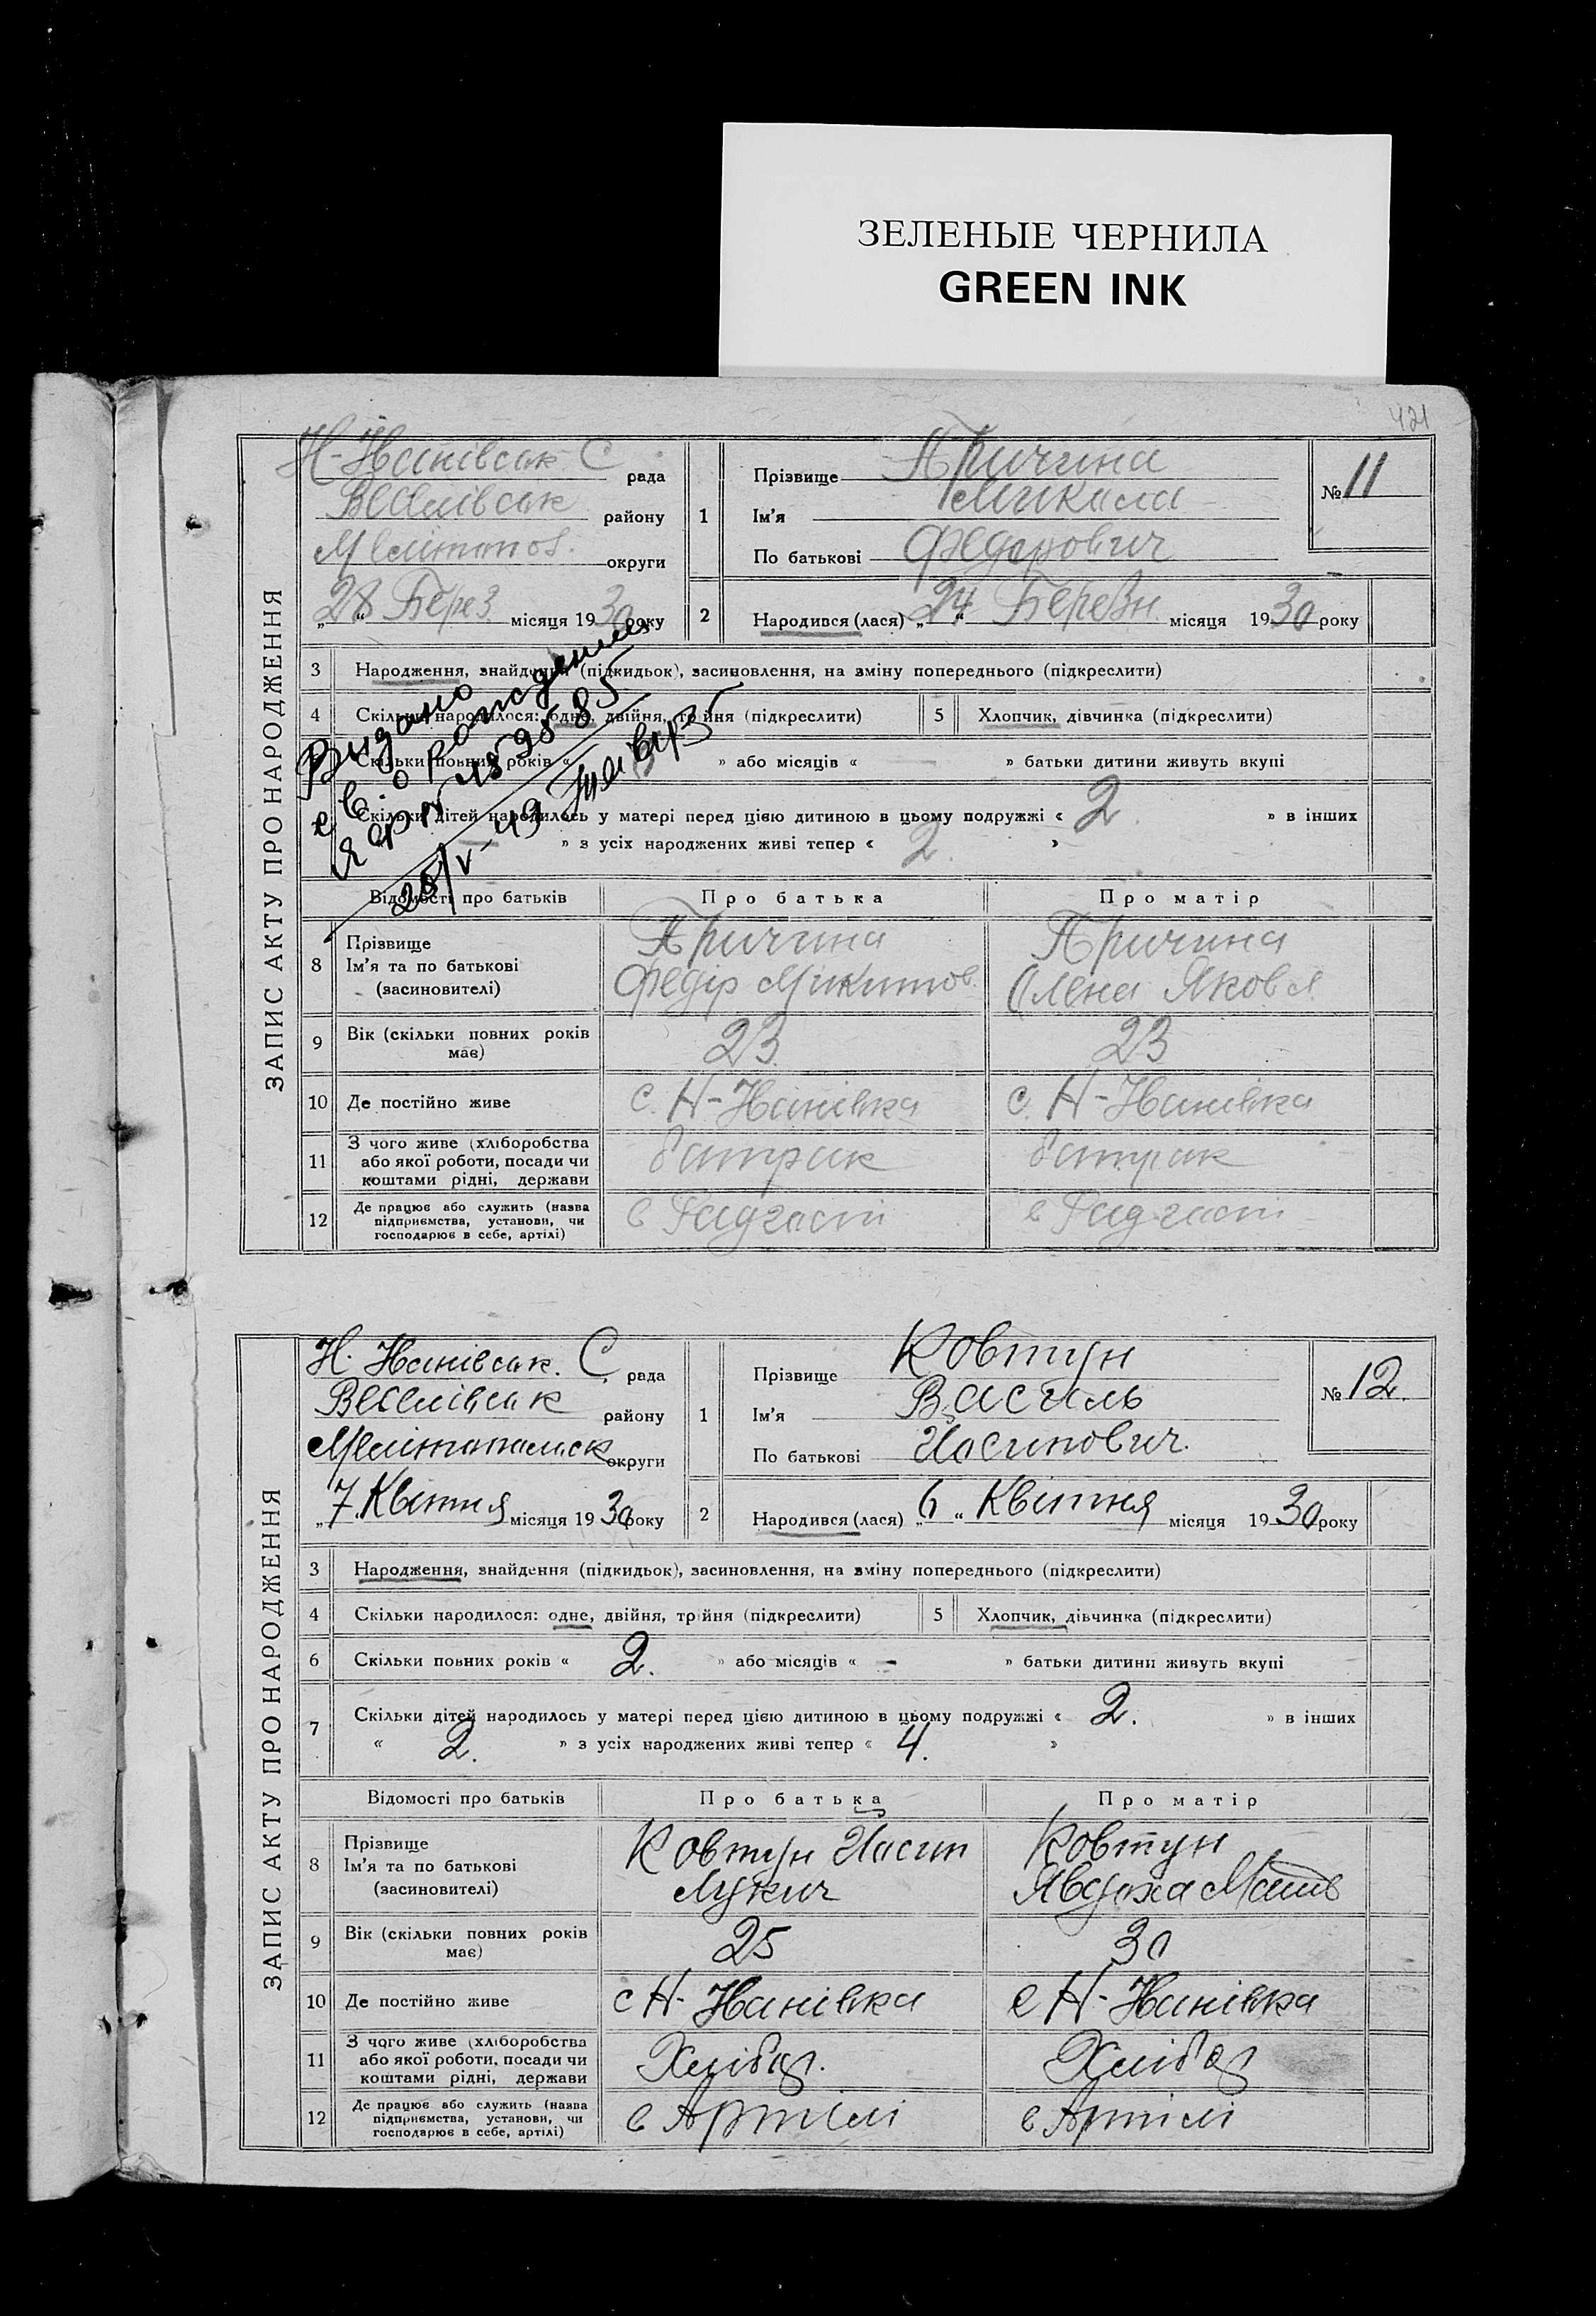 ЗЕЛЕНЫЕ ЧЕРНИЛА
GREEN INK
421
ЗАПИС АКТУ ПРО НАРОДЖЕННЯ
Н-Іванівськ С рада
Веселівськ району
Мелітопол. округи
„28" Берез місяця 1930 року
1 Прізвище Причина
Ім'я Микола
По батькові Федорович
№ 11
2 Народився (лася) „24" Березн місяця 1930 року
3 Народження, знайдення (підкидьок), засиновлення, на зміну попереднього (підкреслити)
4 Скільки народилося: одне, двійня, трійня (підкреслити) 5 Хлопчик, дівчинка (підкреслити)
Скільки повних років « 3 » або місяців « — » батьки дитини живуть вкупі
Скільки дітей народилось у матері перед цією дитиною в цьому подружжі « 2 » в інших
— » з усіх народжених живі тепер « 2 »
Видано
св. о рождении
20/V-49
Відомості про батьків Про батька Про матір
8 Прізвище Ім'я та по батькові (засиновителі) Причина Федір Микитов. Причина Олена Яковл
9 Вік (скільки повних років має) 23 23
10 Де постійно живе с. Н-Іванівка с. Н-Іванівка
11 З чого живе (хліборобства або якої роботи, посади чи коштами рідні, держави батрак батрак
12 Де працює або служить (назва підприємства, установи, чи господарює в себе, артілі) в Радгоспі в Радгоспі
ЗАПИС АКТУ ПРО НАРОДЖЕННЯ
Н. Іванівськ. С. рада
Веселівськ району
Мелітопольск округи
„7. Квітня місяця 1930 року
1 Прізвище Ковтун
Ім'я Василь
По батькові Йосипович.
№ 12.
2 Народився (лася) „6" Квітня місяця 1930 року
3 Народження, знайдення (підкидьок), засиновлення, на зміну попереднього (підкреслити)
4 Скільки народилося: одне, двійня, трійня (підкреслити) 5 Хлопчик, дівчинка (підкреслити)
6 Скільки повних років « 2. » або місяців « - » батьки дитини живуть вкупі
7 Скільки дітей народилось у матері перед цією дитиною в цьому подружжі « 2. » в інших
« 2. » з усіх народжених живі тепер « 4. »
Відомості про батьків Про батька Про матір
8 Прізвище Ім'я та по батькові (засиновителі) Ковтун Йосип Лукич Ковтун Явдоха Матв
9 Вік (скільки повних років має) 25 30
10 Де постійно живе с Н-Іванівка с Н-Іванівка
11 З чого живе (хліборобства або якої роботи, посади чи коштами рідні, держави Хлібор. Хлібор
12 Де працює або служить (назва підприємства, установи, чи господарює в себе, артілі) в Артілі в Артілі